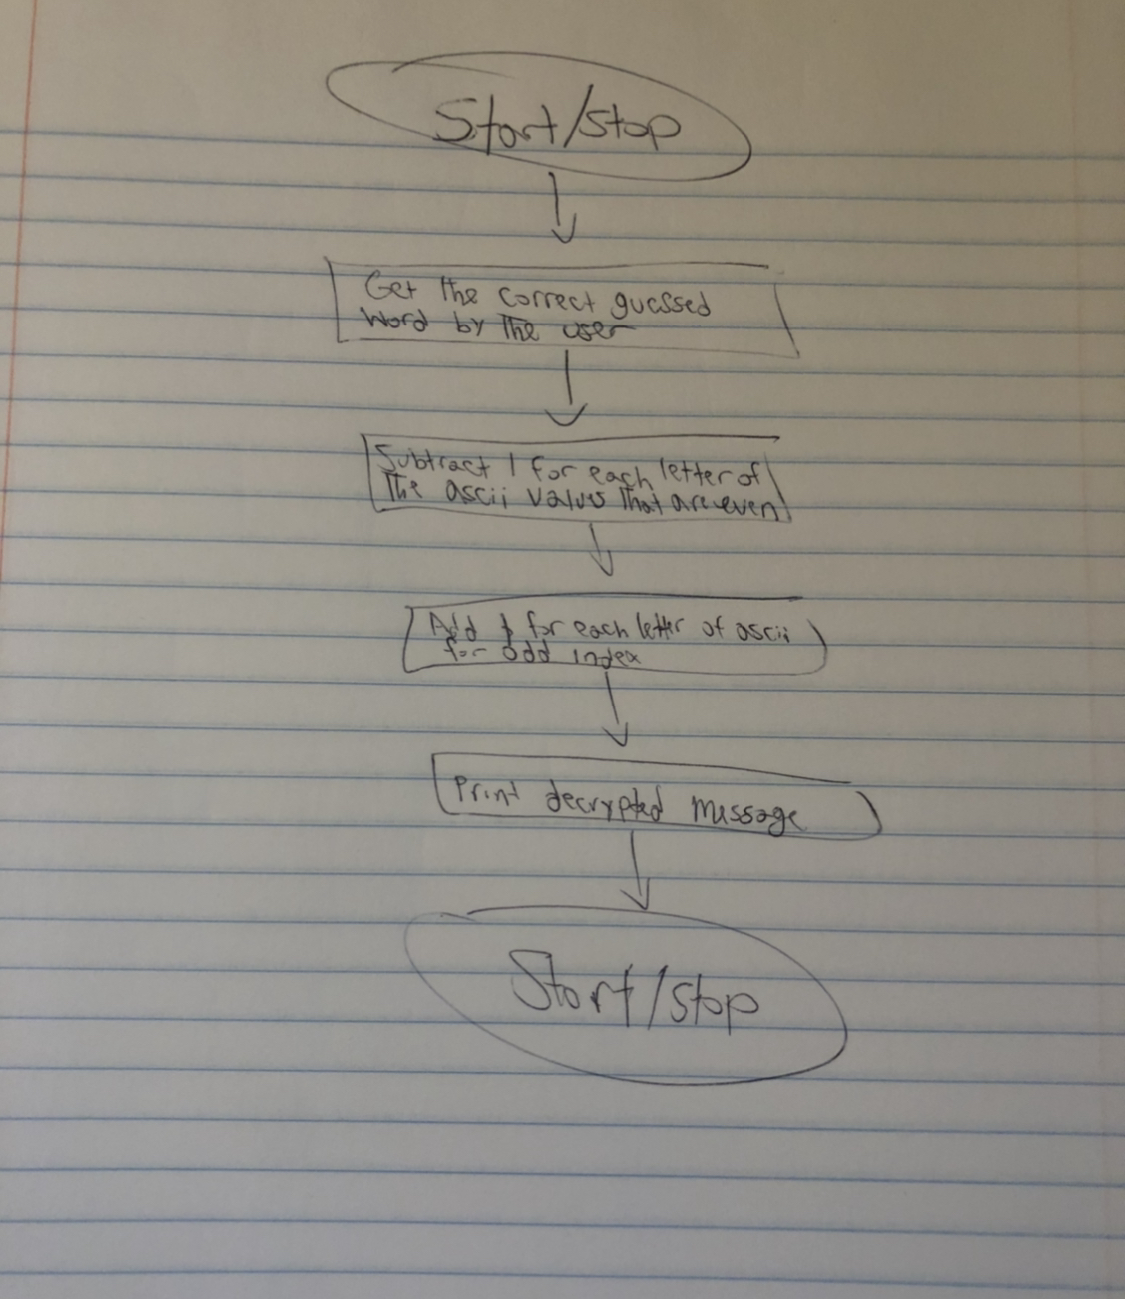 Start/stop
Get the correct guessed
word by the user
Subtract 1 for each letter of
the ascii values that are even
Add 1 for each letter of ascii
for odd index
Print decrypted message
Start/stop